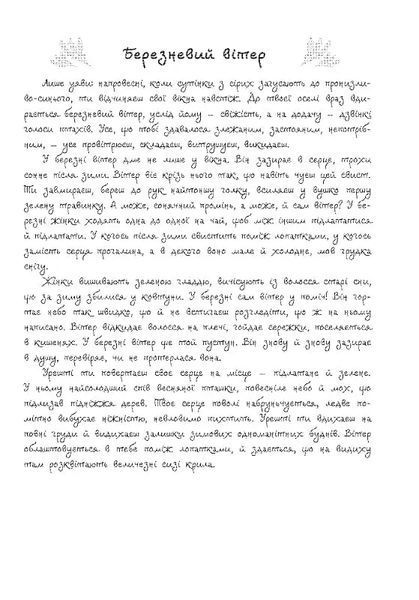 Березневий вітер
Лише уяви: напровесні, коли сутінки з сірих загусають до пронизли-
во-синього, ти відчиняєш свої вікна навстіж. До твоєї оселі враз вди-
рається березневий вітер, услід йому – свіжість, а на додачу – дзвінкі
голоси птахів. Усе, що тобі здавалося злежаним, застояним, непотріб-
ним, – усе провітрюєш, складаєш, витрушуєш, викидаєш.
У березні вітер дме не лише у вікна. Він зазирає в серце, трохи
сонне після зими. Вітер віє крізь нього так, що навіть чуєш цей свист.
Ти завмираєш, береш до рук найтоншу голку, всиляєш у вушко першу
зелену травинку. А може, сонячний промінь, а може, й сам вітер? У бе-
резні жінки ходять одна до одної на чай, щоб між іншим підлататися
й підлатати. У когось після зими свистить поміж лопатками, у когось
замість серця прогалина, а в декого воно мале й холодне, мов грудка
снігу.
Жінки вишивають зеленою гладдю, вичісують із волосся старі сни,
що за зиму збилися у ковтуни. У березні сам вітер у поміч! Він гор-
тає небо так швидко, що й не встигаєш розгледіти, що ж на ньому
написано. Вітер відкидає волосся на плечі, гойдає сережки, поселяється
в кишенях. У березні вітер ще той пустун. Він знову й знову зазирає
в душу, перевіряє, чи не протерлася вона.
Урешті ти повертаєш своє серце на місце – підлатане й зелене.
У ньому найсолодший спів весняної пташки, повесніле небо й мох, що
підлизав підніжжя дерев. Твоє серце поволі набруньчується, ледве по-
мітно вибухає ніжністю, невловимо Урешті ти вдихаєш на
повні груди й видихаєш залишки зимових одноманітних буднів. Вітер
облаштовується в тебе поміж лопатками, й здається, що на видиху
там розквітають величезні сизі крила.